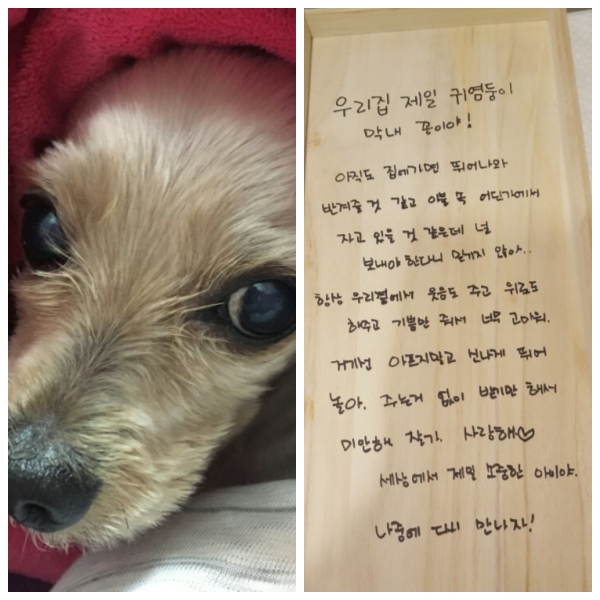 우리집 제일 귀염둥이
막내 꽁이야!
아직도 집에가면 뛰어나와
반겨줄 것 같고 이불 속 어딘가에서
자고 있을 것 같은데 널
보내야 한다니 믿기지 않아..
항상 우리곁에서 웃음도 주고 위로도
해주고 기쁨만 줘서 너무 고마워.
거기선 아프지말고 신나게 뛰어
놀아. 주는거 없이 받기만 해서
미안해 잘가. 사랑해♡
세상에서 제일 소중한 아이야.
나중에 다시 만나자!